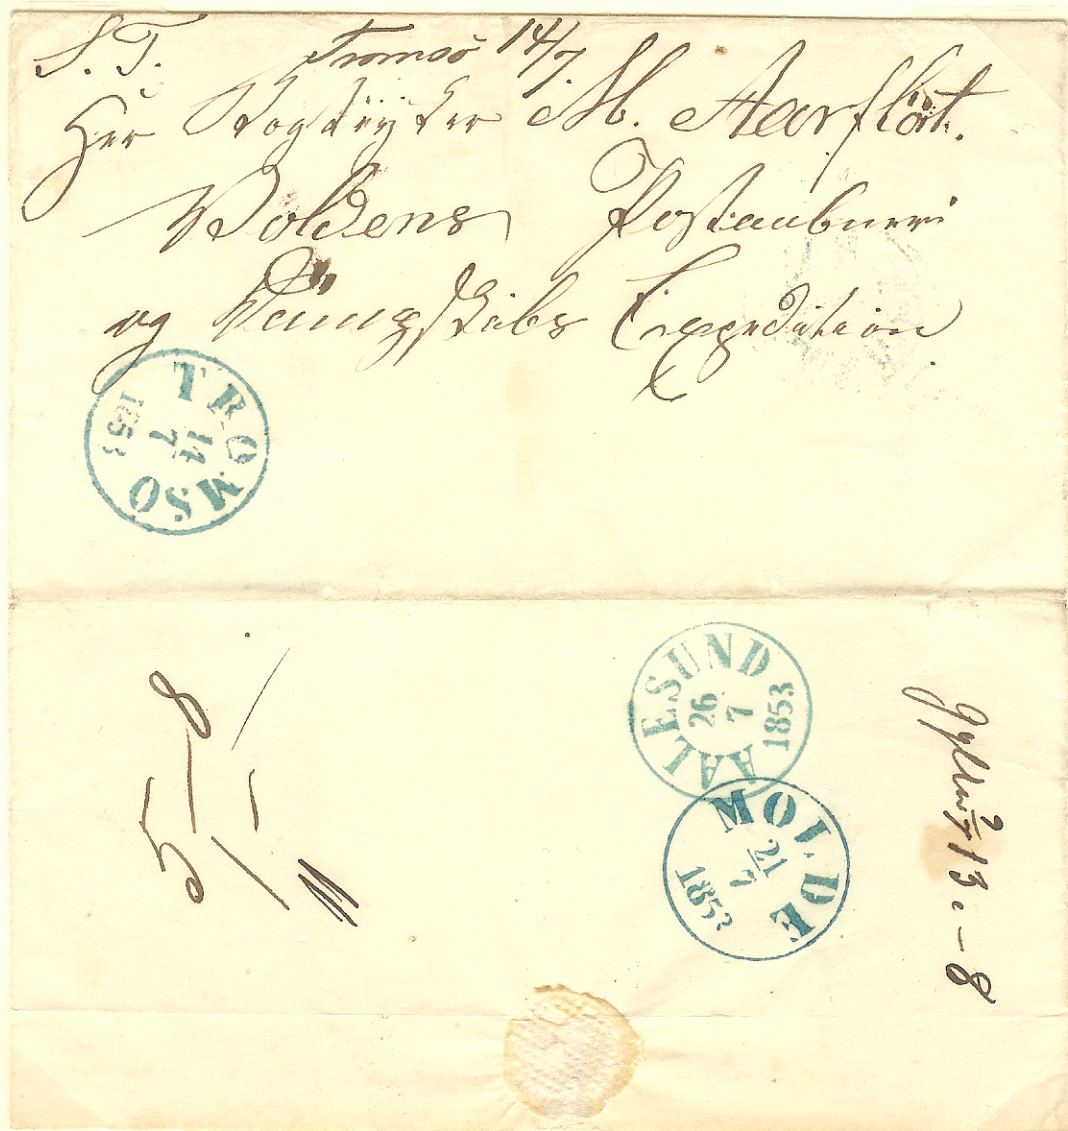 S. T.
Tromsö 14/7.
Herr Bogtrÿker M. Aarflöt.
Voldens Postaabneri
og Dampskibs Expedition
TROMSO
14
7
1853
AALESUND
26
7
1853
MOLDE
21
7
1853
5–8
13 – 8